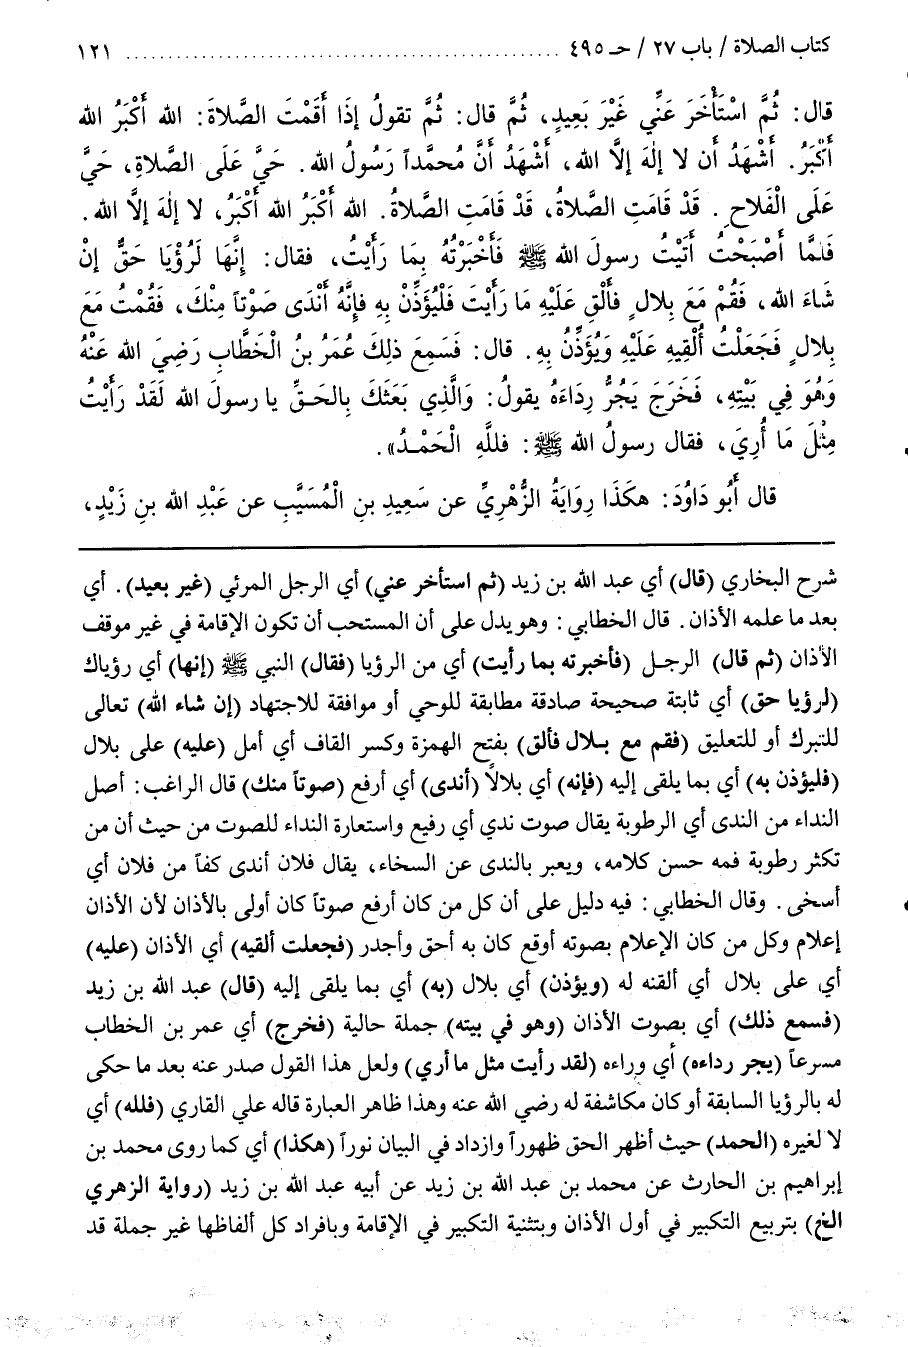 كتاب الصلاة / باب ٢٧ / حـ ٤٩٥ ................................................ ١٢١
قال: ثُمَّ اسْتَأْخَرَ عَنِّي غَيْرَ بَعِيدٍ، ثُمَّ قال: ثُمَّ تقولُ إذَا أقَمْتَ الصَّلاةَ: الله أكْبَرُ الله
أَكْبَرُ. أَشْهَدُ أن لا إلَهَ إلاَّ الله، أَشْهَدُ أنَّ مُحمَّداً رَسُولُ الله. حَيَّ عَلَى الصَّلاةِ، حَيَّ
عَلَى الْفَلاحِ. قَدْ قَامَتِ الصَّلاةُ، قَدْ قَامَتِ الصَّلاةُ. الله أكْبَرُ الله أكْبَرُ، لا إلهَ إلاَّ الله.
فَلمَّا أَصْبَحْتُ أَتَيْتُ رسولَ الله ﷺ فَأخْبَرْتُهُ بِمَا رَأَيْتُ، فقال: إنَّهَا لَرُؤْيَا حَقٌّ إنْ
شَاءَ الله، فَقُمْ مَعَ بِلالٍ فأَلْقِ عَلَيْهِ مَا رَأَيْتَ فَلْيُؤَذِّنْ بِهِ فإنَّهُ أنْدَى صَوْتاً مِنْكَ، فَقُمْتُ مَعَ
بِلالٍ فَجَعَلْتُ أُلْقِيهِ عَلَيْهِ وَيُؤَذِّنُ بِهِ. قال: فَسَمِعَ ذلِكَ عُمَرُ بنُ الْخَطَّابِ رَضِيَ الله عَنْهُ
وَهُوَ فِي بَيْتِهِ، فَخَرَجَ يَجُرُّ رِدَاءَهُ يقولُ: وَالَّذِي بَعَثَكَ بِالحَقِّ يا رسولَ الله لَقَدْ رَأَيْتُ
مِثْلَ مَا أُرِيَ، فقال رسولُ الله ﷺ: فللَّهِ الْحَمْدُ».
قال أَبُو دَاوُدَ: هكَذَا رِوَايَةُ الزُّهْرِيِّ عن سَعِيدِ بنِ الْمُسَيَّبِ عن عَبْدِ الله بنِ زَيْدٍ،
شرح البخاري (قال) أي عبد الله بن زيد (ثم استأخر عني) أي الرجل المرئي (غير بعيد). أي
بعد ما علمه الأذان. قال الخطابي: وهو يدل على أن المستحب أن تكون الإقامة في غير موقف
الأذان (ثم قال) الرجل (فأخبرته بما رأيت) أي من الرؤيا (فقال) النبي ﷺ (إنها) أي رؤياك
(لرؤيا حق) أي ثابتة صحيحة صادقة مطابقة للوحي أو موافقة للاجتهاد (إن شاء الله) تعالى
للتبرك أو للتعليق (فقم مع بلال فألق) بفتح الهمزة وكسر القاف أي أمل (عليه) على بلال
(فليؤذن به) أي بما يلقى إليه (فإنه) أي بلالاً (أندى) أي أرفع (صوتاً منك) قال الراغب: أصل
النداء من الندى أي الرطوبة يقال صوت ندي أي رفيع واستعارة النداء للصوت من حيث أن من
تكثر رطوبة فمه حسن كلامه، ويعبر بالندى عن السخاء، يقال فلان أندى كفاً من فلان أي
أسخى. وقال الخطابي: فيه دليل على أن كل من كان أرفع صوتاً كان أولى بالأذان لأن الأذان
إعلام وكل من كان الإعلام بصوته أوقع كان به أحق وأجدر (فجعلت ألقيه) أي الأذان (عليه)
أي على بلال أي ألقنه له (ويؤذن) أي بلال (به) أي بما يلقى إليه (قال) عبد الله بن زيد
(فسمع ذلك) أي بصوت الأذان (وهو في بيته) جملة حالية (فخرج) أي عمر بن الخطاب
مسرعاً (يجر رداءه) أي وراءه (لقد رأيت مثل ما أري) ولعل هذا القول صدر عنه بعد ما حكى
له بالرؤيا السابقة أو كان مكاشفة له رضي الله عنه وهذا ظاهر العبارة قاله علي القاري (فلله) أي
لا لغيره (الحمد) حيث أظهر الحق ظهوراً وازداد في البيان نوراً (هكذا) أي كما روى محمد بن
إبراهيم بن الحارث عن محمد بن عبد الله بن زيد عن أبيه عبد الله بن زيد (رواية الزهري
الخ) بتربيع التكبير في أول الأذان وبتثنية التكبير في الإقامة وبافراد كل ألفاظها غير جملة قد